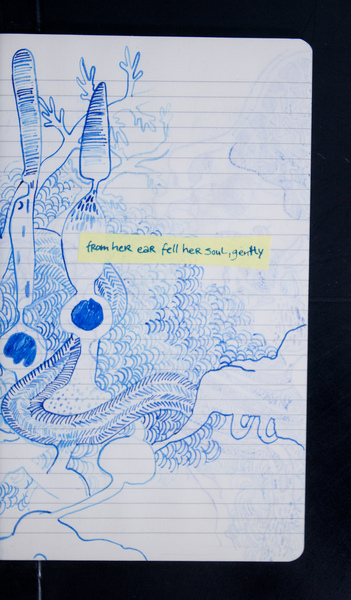 from her ear fell her soul, gently